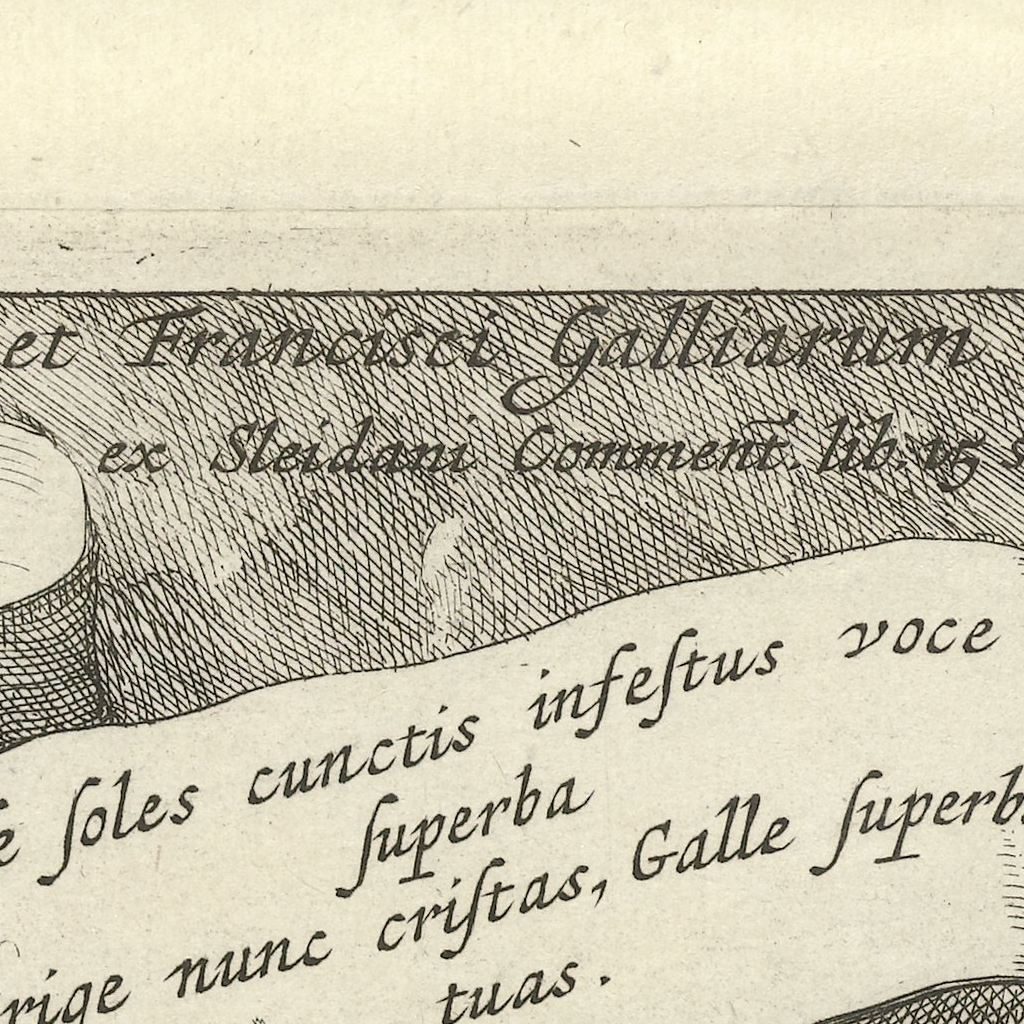 et Francisci Galliarum
ex Sleidani Comment. lib. 15 s
e ſoles cunctis infeſtus voce
ſuperba
rige nunc criſtas, Galle ſuperb
tuas.